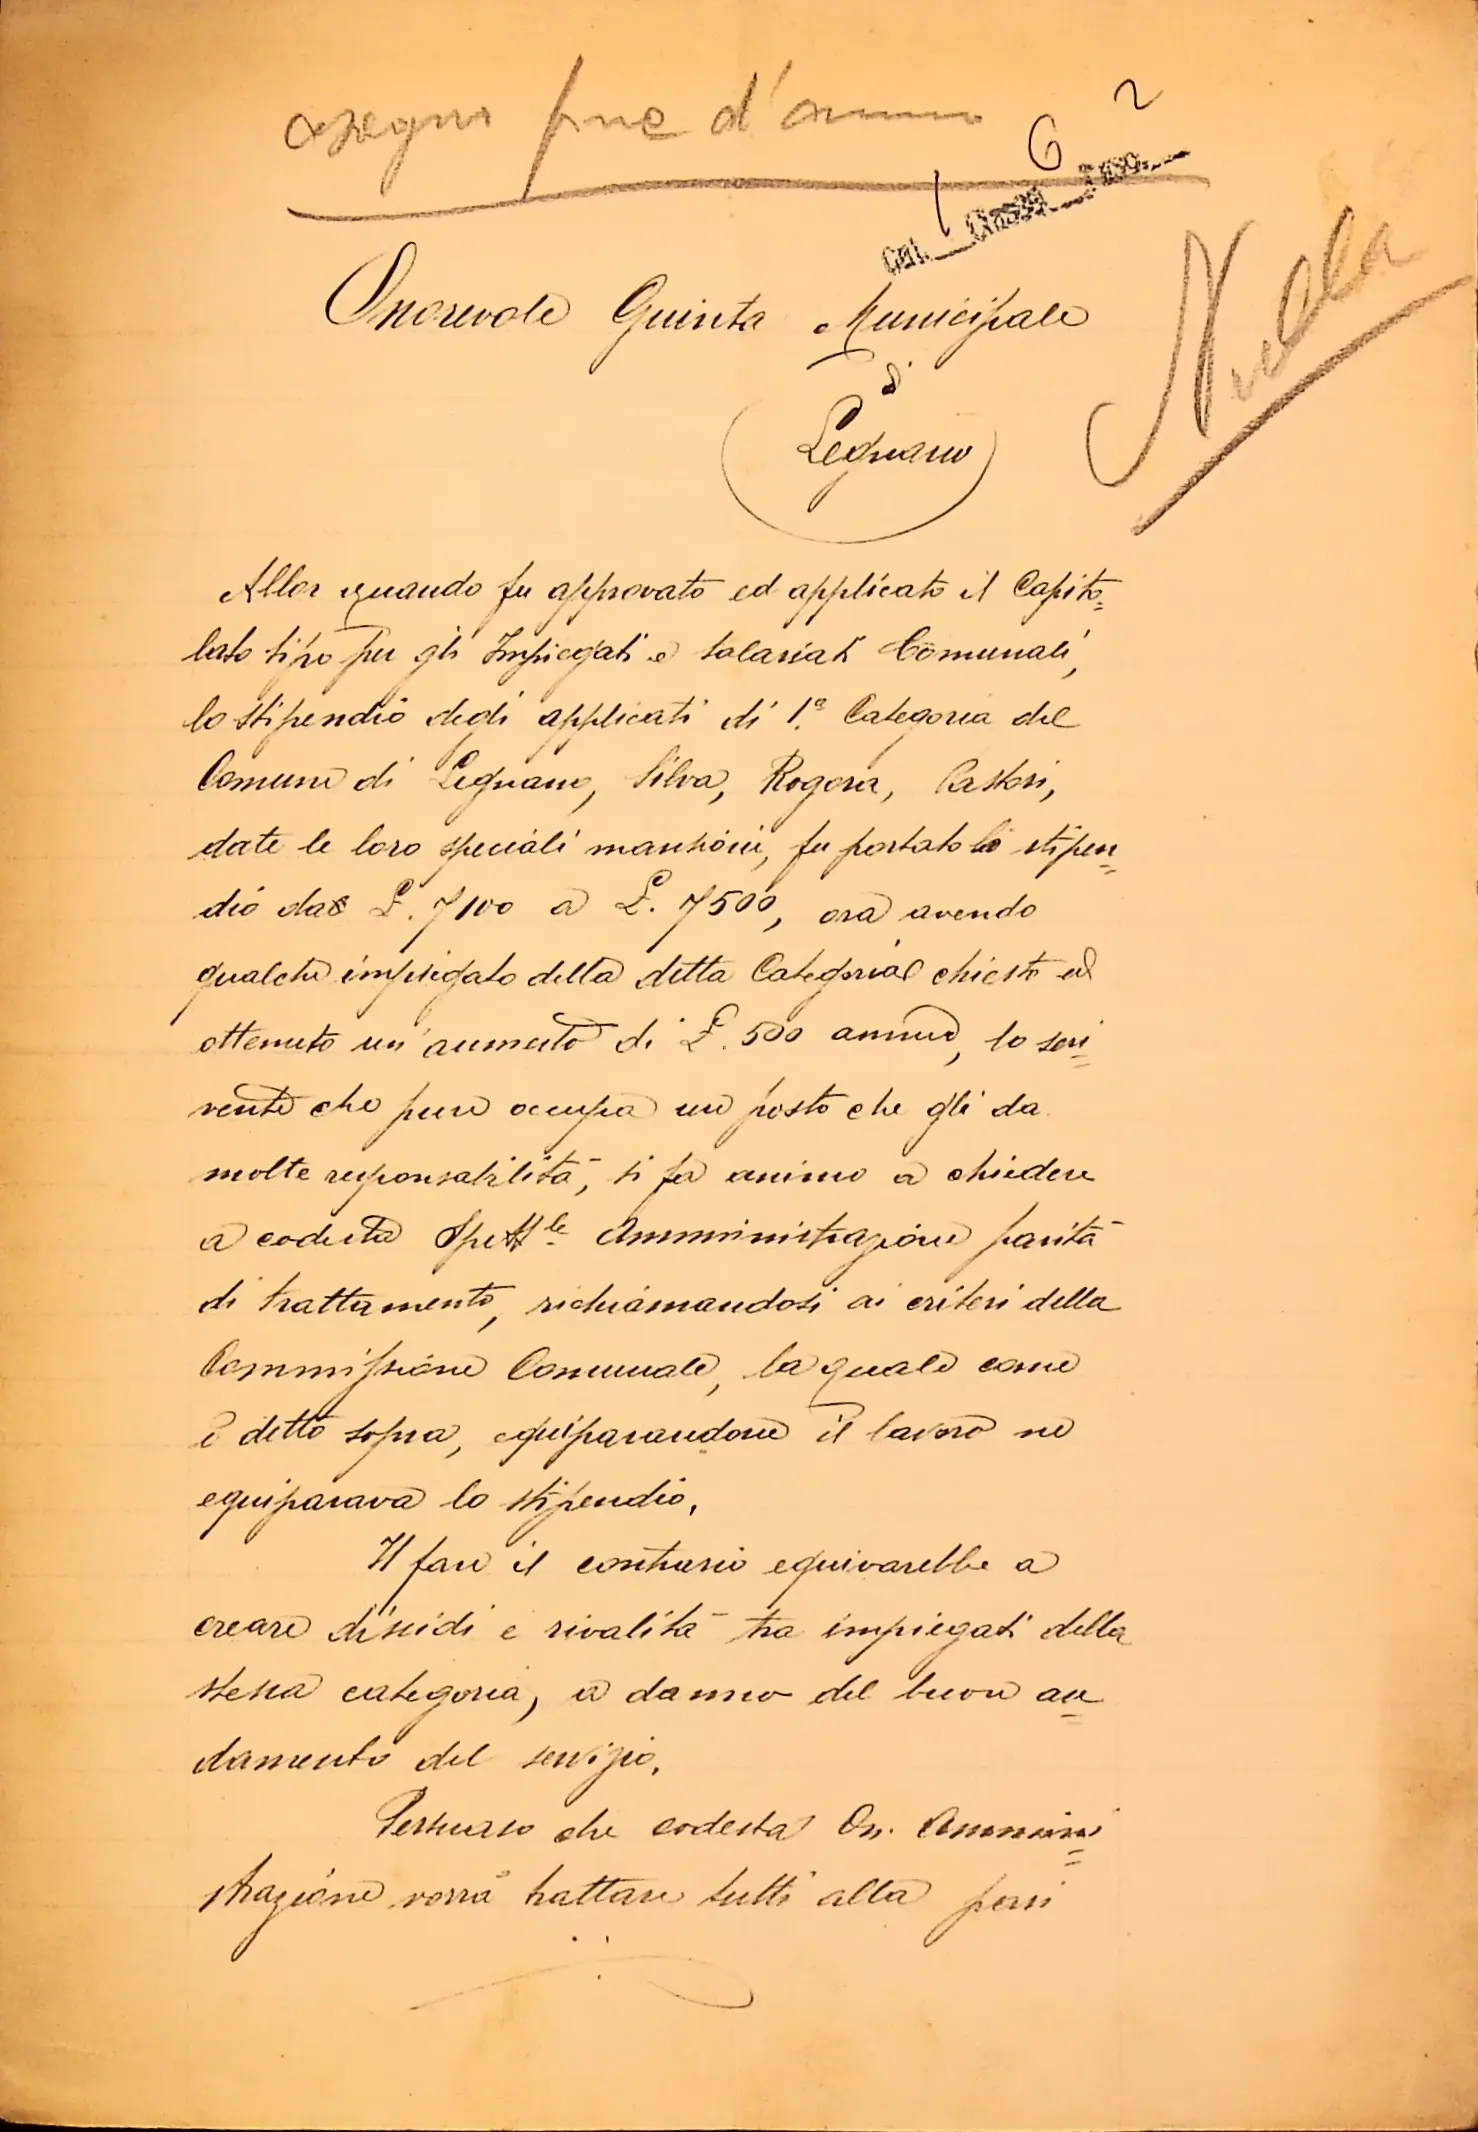 assegno fine d'anno
2
6
1
Cat. Classe Fasc.
Nulla
Onorevole Giunta Municipale
di
Legnano
Allor quando fu approvato ed applicato il Capito=
lato tipo per gli Impiegati e salariati Comunali,
lo stipendio degli applicati di 1.ª Categoria del
Comune di Legnano, Silva, Rogora, Castori,
date le loro speciali mansioni, fu portato lo stipen=
dio da £. 7100 a £. 7500, ora avendo
qualche impiegato della detta Categoria chiesto ed
ottenuto un'aumento di £. 500 annue, lo scri=
vente che pure occupa un posto che gli da
molte responsabilità, si fa animo a chiedere
a codesta Spett.le Amministrazione parità
di trattamento, richiamandosi ai criteri della
Commissione Comunale, la quale come
è detto sopra, equiparandone il lavoro ne
equiparava lo stipendio.
Il fare il contrario equivarebbe a
creare dissidi e rivalità tra impiegati della
stessa categoria, a danno del buon an=
damento del servizio.
Persuaso che codesta On. Ammini=
strazione vorrà trattare tutti alla pari